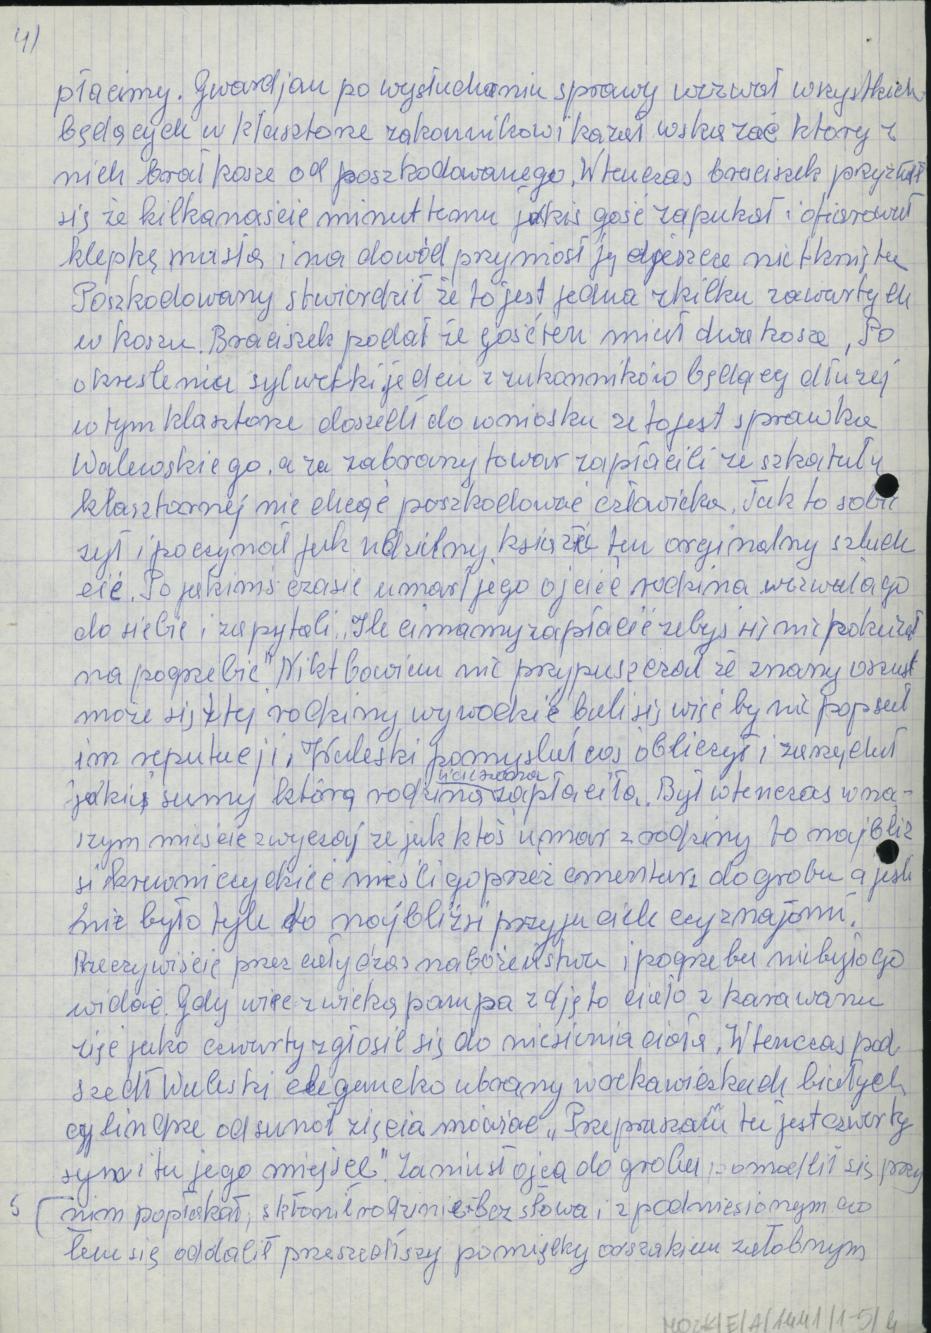 4)
płacimy. Gwardjan po wysłuchaniu sprawy wezwał wszystkich
będących w klasztorze zakonników i kazał wskazać który z
nich brał kosze od poszkodowanego. Wtenczas braciszek przyznał
się że kilkanaście minut temu jakiś gość zapukał i ofiarował
klepkę masła i na dowód przyniósł ją jeszcze nietkniętą
Poszkodowany stwierdził że to jest jedna z kilku zawartych
w koszu. Braciszek podał że gość ten miał dwa kosze, Po
określeniu sylwetki jeden z zakonników będący dłużej
w tym klasztorze doszedł do wniosku że to jest sprawka
Walewskiego. a za zabrany towar zapłacili ze szkatuły
klasztornej nie chcąc poszkodować człowieka. Tak to sobie
żył i poczynał jak udzielny książe ten orginalny szlach
cic. Po jakimś czasie umarł jego ojciec rodzina wezwała go
do siebie i zapytali „Ile ci mamy zapłacić żebyś się nie pokazał
na pogrzebie". Nikt bowiem nie przypuszczał że znany oszust
może się z tej rodziny wywodzić bali się więc by nie popsuł
im reputacji, Waleski pomyślał coś obliczył i zażądał
jakiejś sumy którą rodzina uciszona zapłaciła. Był wtenczas w na-
szym mieście zwyczaj że jak ktoś umar z rodziny to najbliż
si krewni czy dzieci nieśli go przez cmentarz do grobu a jeśli
nie było tyle to najbliżsi przyjaciele czy znajomi.
Rzeczywiście przez cały czas nabożeństwa i pogrzebu nie było go
widać. Gdy więc z wielką pompą zdjęto ciało z karawanu
zięć jako czwarty zgłosił się do niesienia ciała. Wtenczas pod
szedł Waleski elegancko ubrany w rękawiczkach białych
cylindrze odsunoł zięcia mówiąc „Przepraszam tu jest czwarty
syn i tu jego miejsce". Zaniósł ojca do grobu pomodlił się przy
5 nim popłakał, skłonił rodzinie bez słowa i z podniesionym czo
łem się oddalił przeszedłszy pomiędzy orszakiem żałobnym
MOZK/E/A/1441/1-5/4